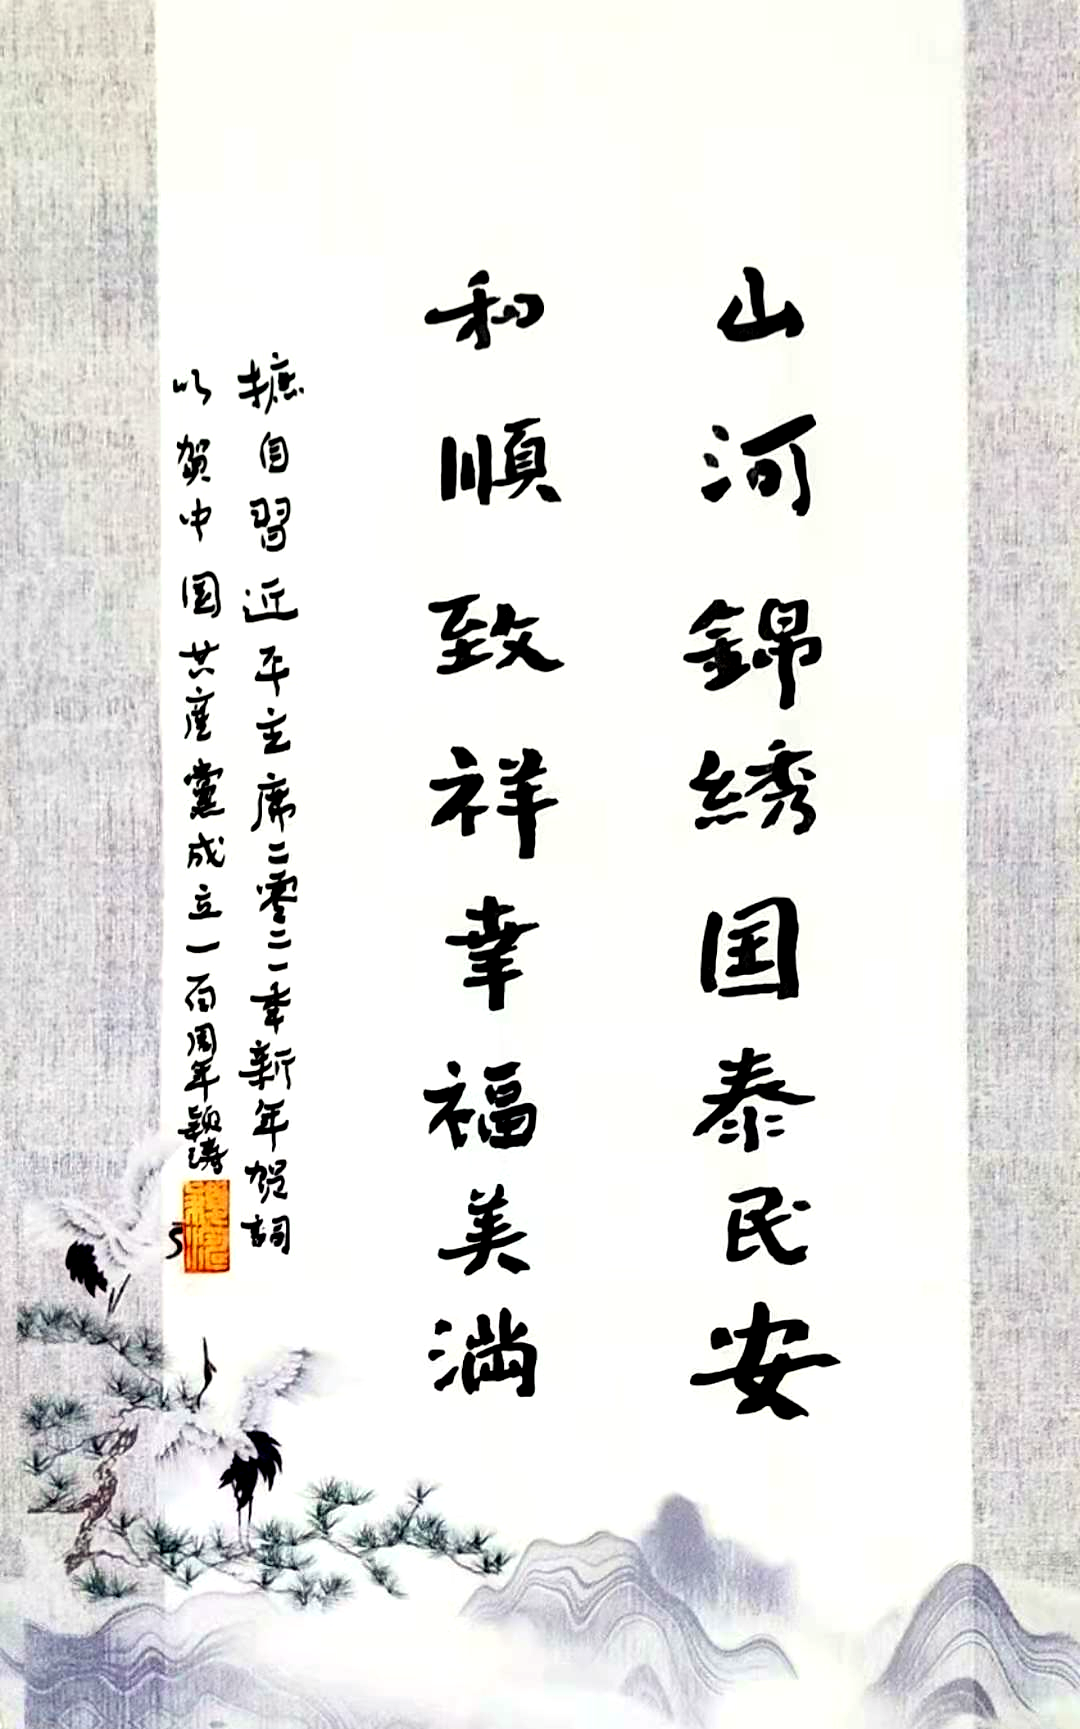 山河錦绣国泰民安
和順致祥幸福美满
摭自習近平主席二零二一年新年贺詞
以贺中国共産黨成立一百周年穎涛